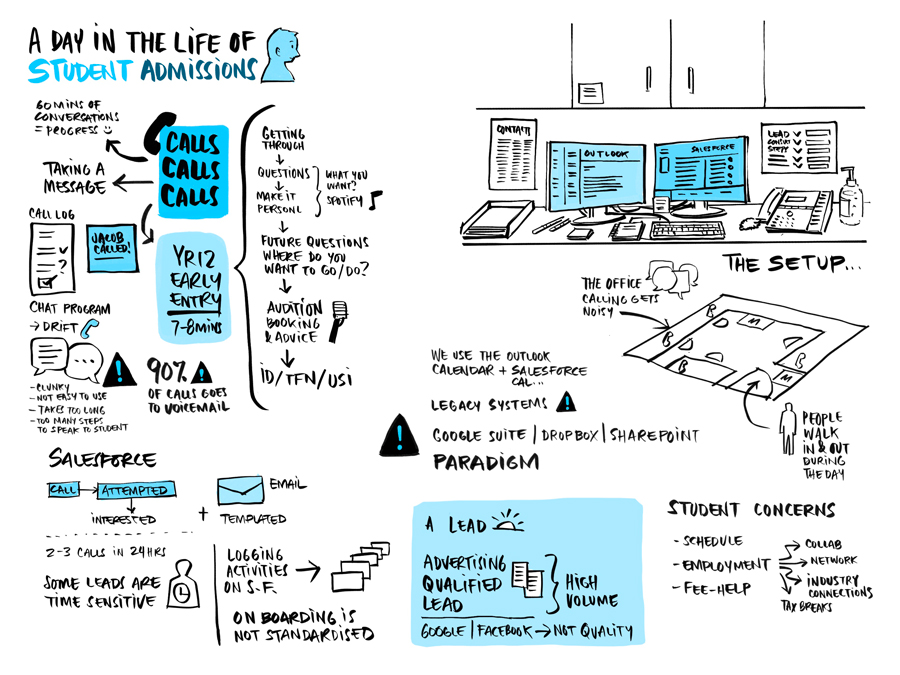 A DAY IN THE LIFE OF
STUDENT ADMISSIONS
60 MINS OF
CONVERSATIONS
= PROGRESS
TAKING A
MESSAGE
CALLS
CALLS
CALLS
CALL LOG
?
JACOB
CALLED!
YR12
EARLY
ENTRY
7-8MINS
GETTING
THROUGH
QUESTIONS
MAKE IT
PERSONL
WHAT YOU
WANT?
SPOTIFY
FUTURE QUESTIONS
WHERE DO YOU
WANT TO GO/DO?
AUDITION
BOOKING
& ADVICE
ID/TFN/USI
CHAT PROGRAM
→ DRIFT
- CLUNKY
- NOT EASY TO USE
- TAKES TOO LONG
- TOO MANY STEPS
TO SPEAK TO STUDENT
!
90% !
OF CALLS GOES
TO VOICEMAIL
SALESFORCE
CALL → ATTEMPTED
INTERESTED
+
EMAIL
TEMPLATED
2-3 CALLS IN 24HRS
SOME LEADS ARE
TIME SENSITIVE
LOGGING
ACTIVITIES
ON S.F.
ON BOARDING IS
NOT STANDARDISED
CONTACTS
OUTLOOK
SALESFORCE
LEAD
CONTACT
STEPS
THE SETUP...
THE OFFICE
CALLING GETS
NOISY
M
M
PEOPLE
WALK
IN & OUT
DURING
THE DAY
WE USE THE OUTLOOK
CALENDAR + SALESFORCE
CAL...
LEGACY SYSTEMS !
! GOOGLE SUITE | DROPBOX | SHAREPOINT
PARADIGM
A LEAD
ADVERTISING
QUALIFIED
LEAD
HIGH
VOLUME
GOOGLE | FACEBOOK → NOT QUALITY
STUDENT CONCERNS
- SCHEDULE
- EMPLOYMENT
- FEE-HELP
COLLAB
NETWORK
INDUSTRY
CONNECTIONS
TAX BREAKS